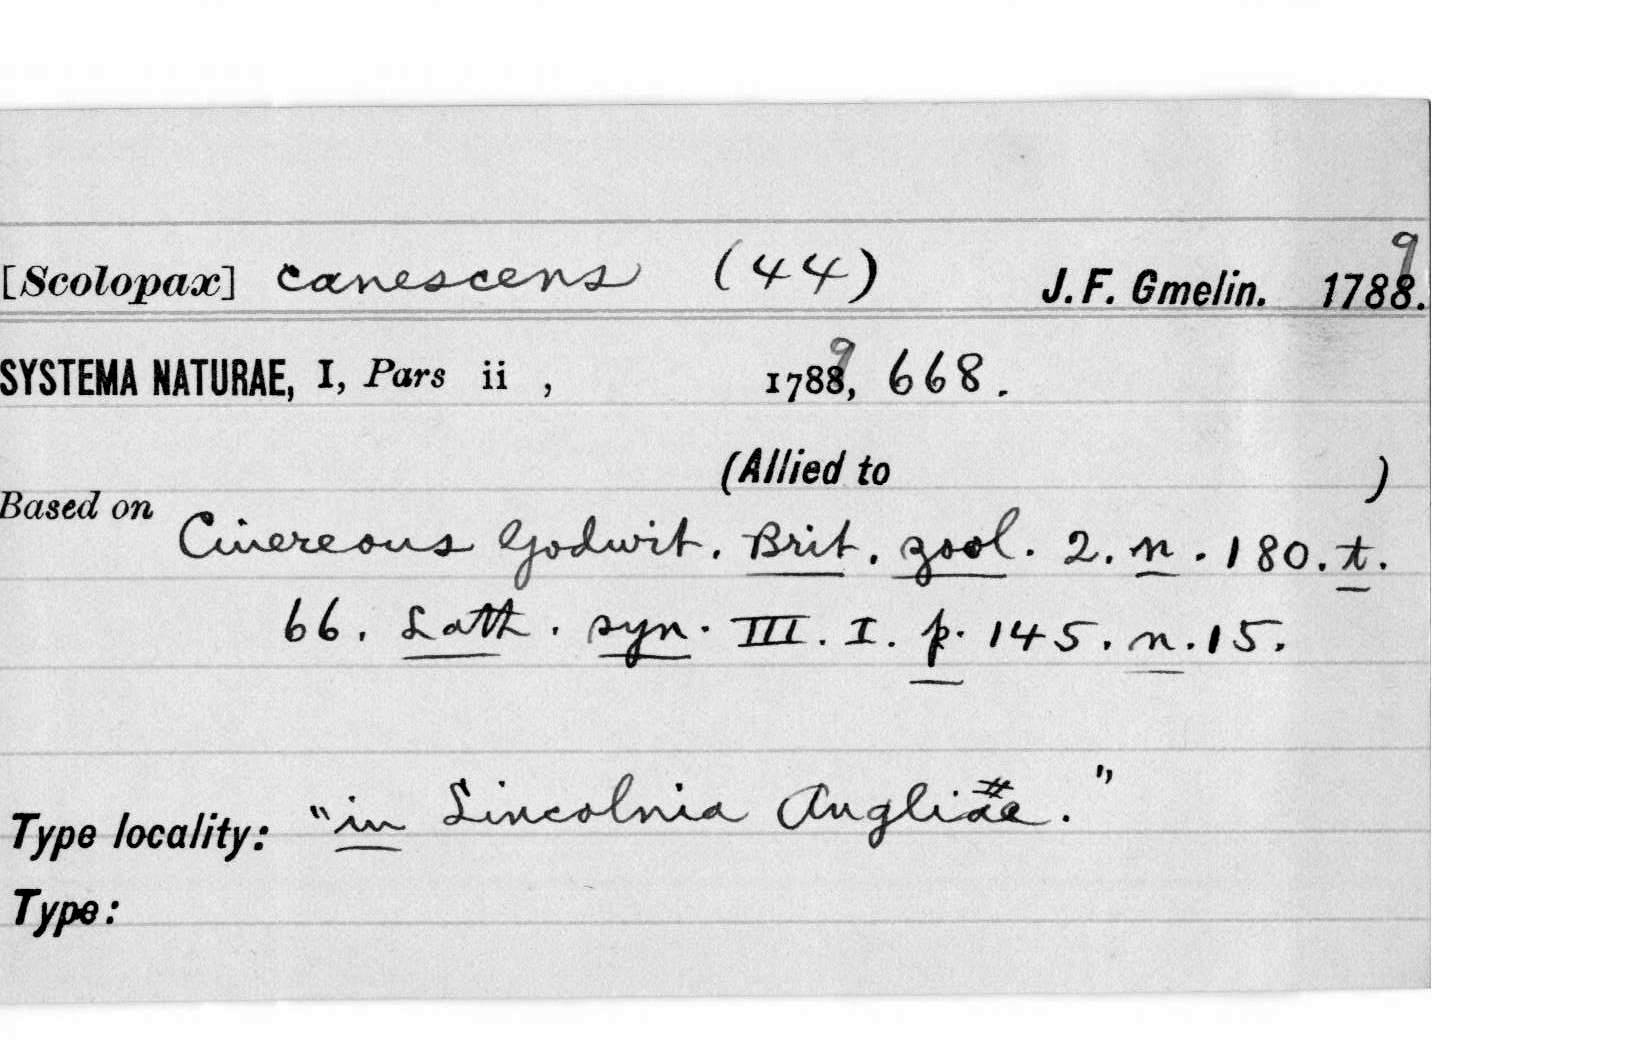 [Scolopax] canescens (44) J. F. Gmelin. 1789.
SYSTEMA NATURAE, I, Pars ii , 1789, 668.
(Allied to )
Based on Cinereous Godwit. Brit. zool. 2. n. 180. t.
66. Lath. syn. III. I. p. 145. n. 15.
Type locality: "in Lincolnia Angliae."
Type: